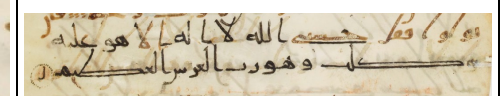 تولوا فقل حسبى الله لا اله الا هو عليه
توكلت وهو رب العرش العظيم